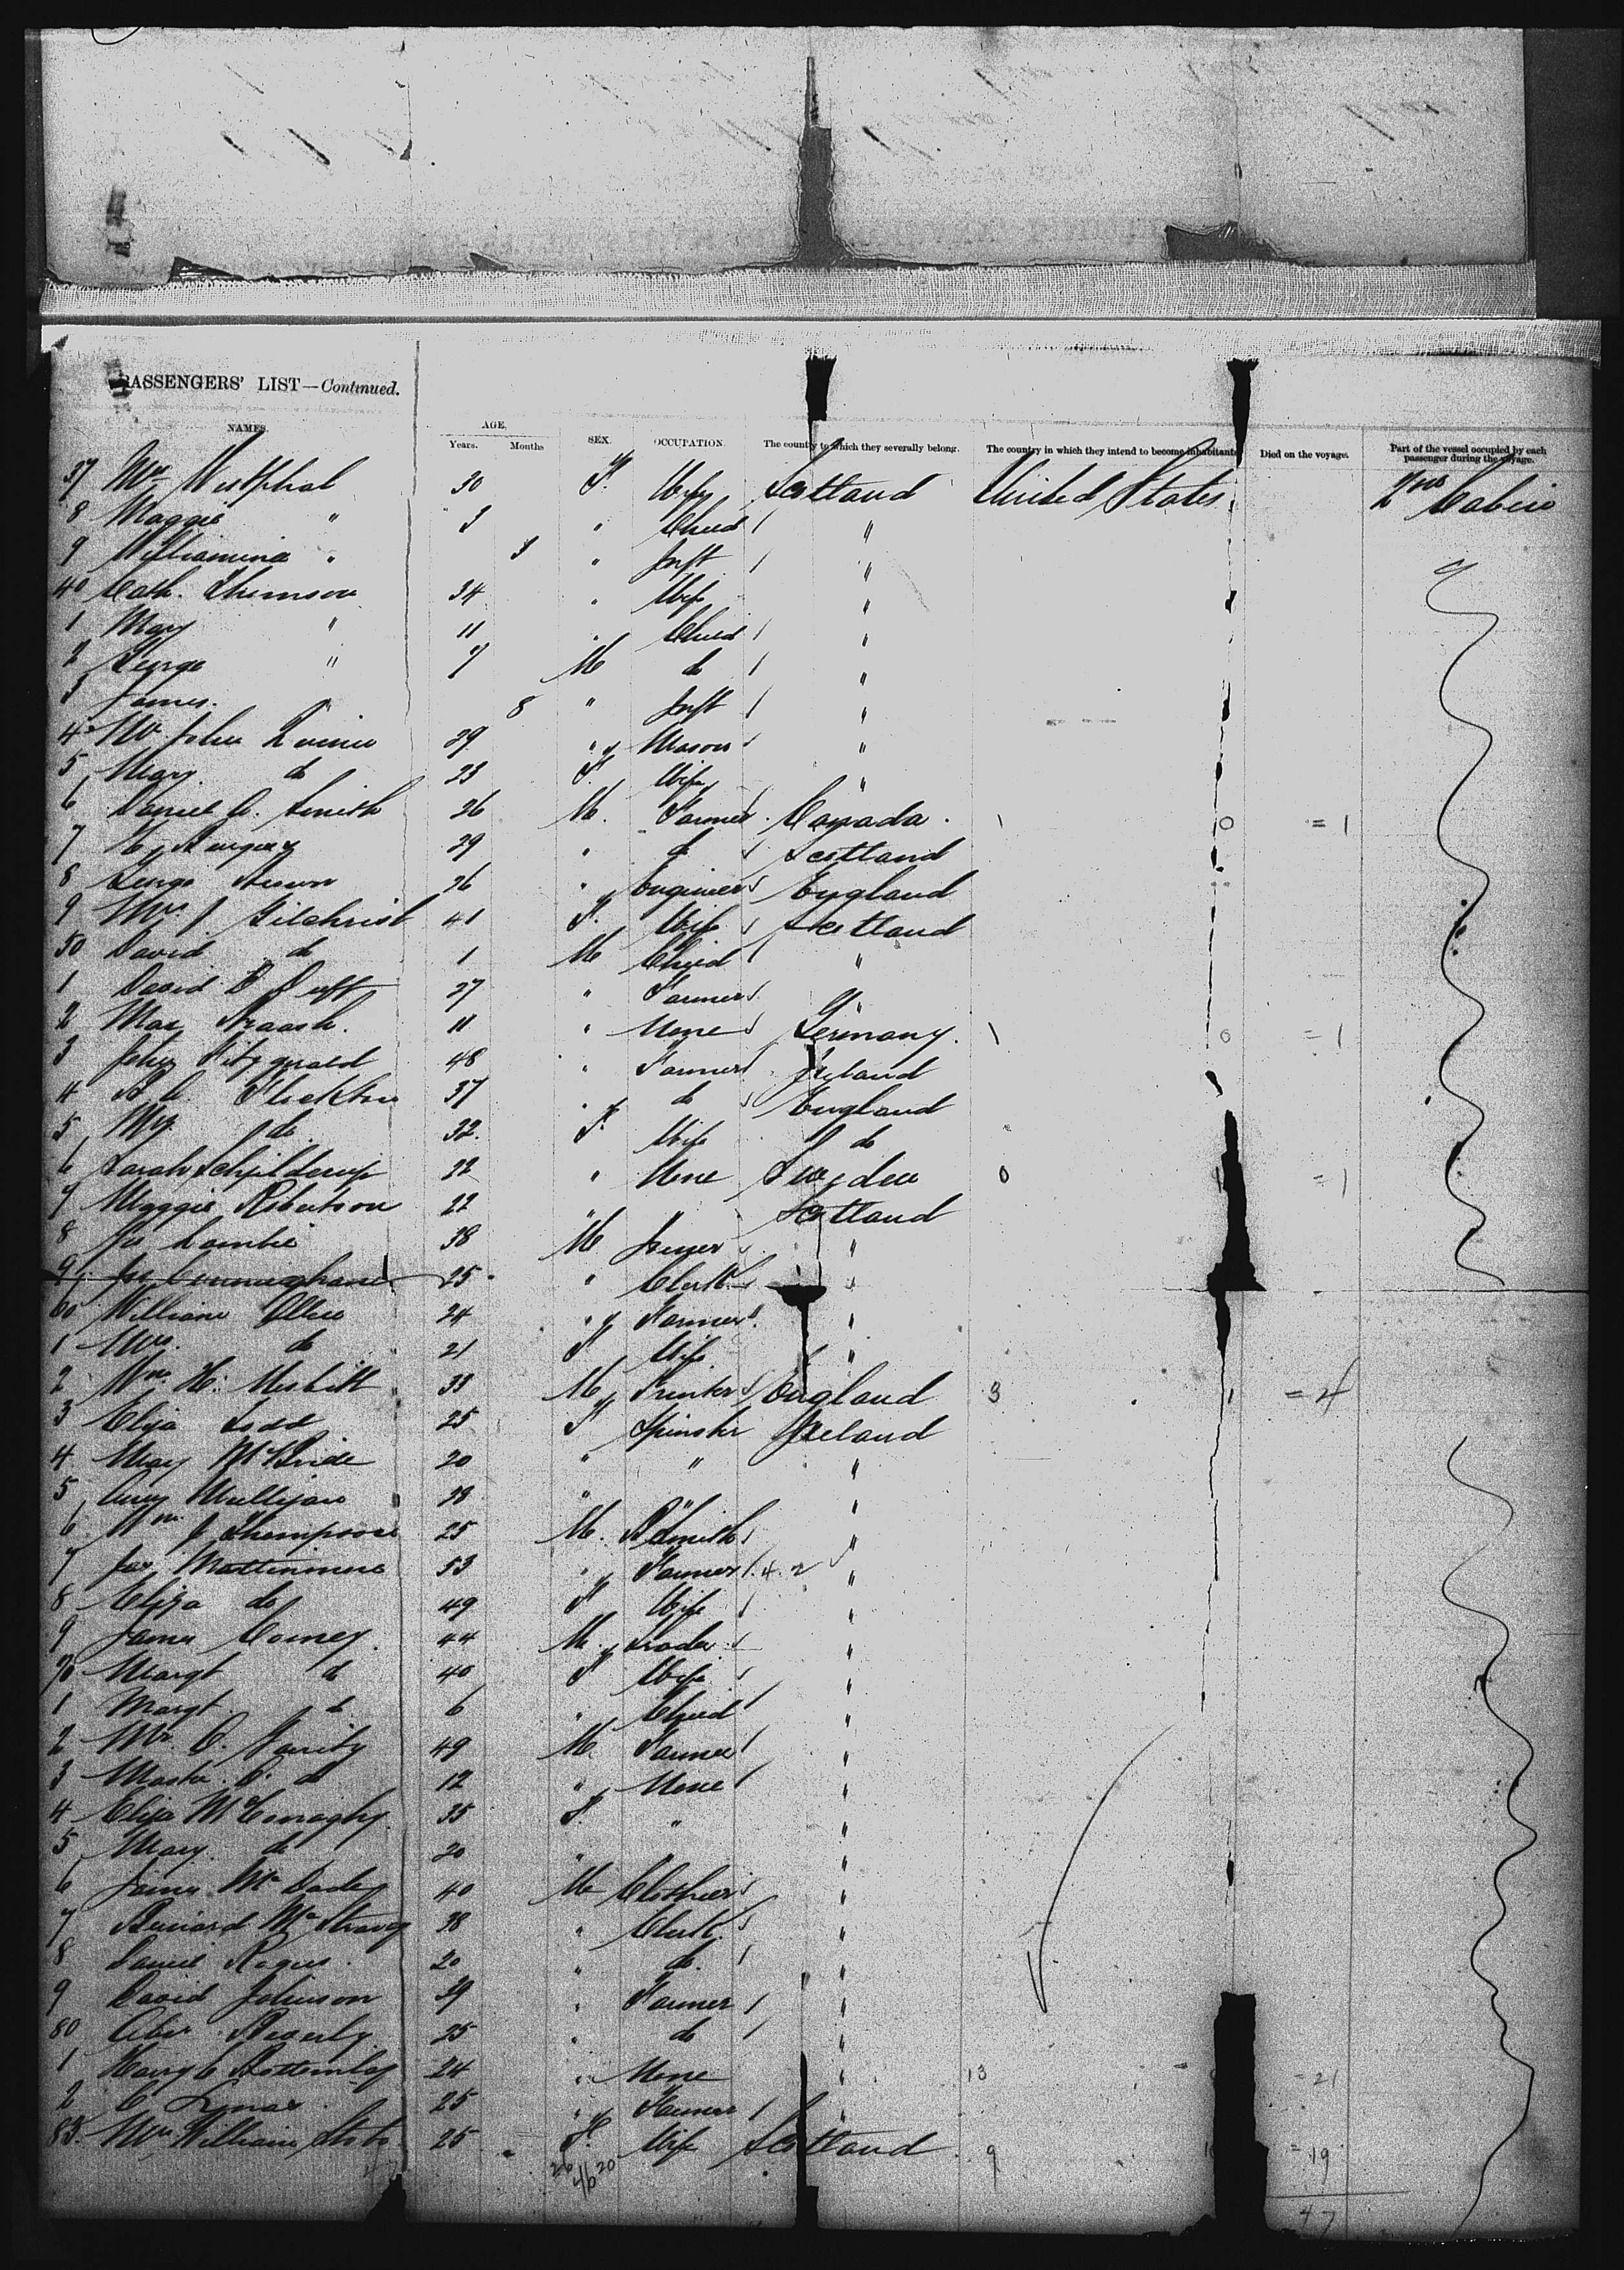 PASSENGERS' LIST—Continued.
NAMES. AGE. Years. Months SEX. OCCUPATION. The country to which they severally belong. The country in which they intend to become inhabitants Died on the voyage. Part of the vessel occupied by each passenger during the voyage.
37 Mrs Westphal 30 F. Wife Scotland United States 2nd Cabin
8 Maggie " 3 " Child "
9 Williamina " 3 " Inft "
40 Cath. Thomson 34 " Wife "
1 Mary " 11 " Child "
2 George " 7 M do "
3 James " 8 " Inft "
4 Mr John 29 " Mason "
5 Mary do 23 F. Wife "
6 Daniel A. Smith 26 M. Farmer Canada 1 0 = 1
7 29 " do Scotland
8 George 26 " Engineer England
9 Mrs J Gilchrist 41 F. Wife Scotland
50 David do 1 M Child "
1 David B Duff 27 " Farmer "
2 Max 11 " None Germany 1 0 = 1
3 John Fitzgerald 48 " Farmer Ireland
4 37 " do England
5 Mrs do 32 F. Wife do
6 Sarah Schjilderup 22 " None Sweden 0 = 1
7 Maggie Robertson 22 " Scotland
8 Jas Cambie 38 M Joiner "
9 Jas Cunningham 25 " Clerk "
60 William Allen 24 " Farmer "
1 Mrs do 21 F Wife "
2 Wm H. Nesbitt 33 M Printer England 3 1 = 4
3 Eliza Todd 25 F Spinster Ireland
4 Mary McBride 20 " " "
5 Mulligan 28 " " "
6 Wm J Thompson 25 M. B Smith "
7 Jas Mattinmore 53 " Farmer 4.2 "
8 Eliza do 49 F Wife "
9 James Comey 44 M. Trader "
70 Margt do 40 F Wife "
1 Margt do 6 " Child "
2 Mr. C. Garrity 49 M. Farmer "
3 Master C. do 12 " None "
4 Eliza McConaghy 35 F. " "
5 Mary do 20 " " "
6 James McDade 40 M Clothier "
7 Bernard McStravog 38 " Clerk "
8 Daniel Rogers 20 " do "
9 David Johnson 29 " Farmer "
80 Beverly 25 " do "
1 Harry C Rottenberg 24 " None " 13 = 21
2 C 25 " Farmer "
83. Mrs William 25 F. Wife Scotland 9 = 19
26 20
46 47